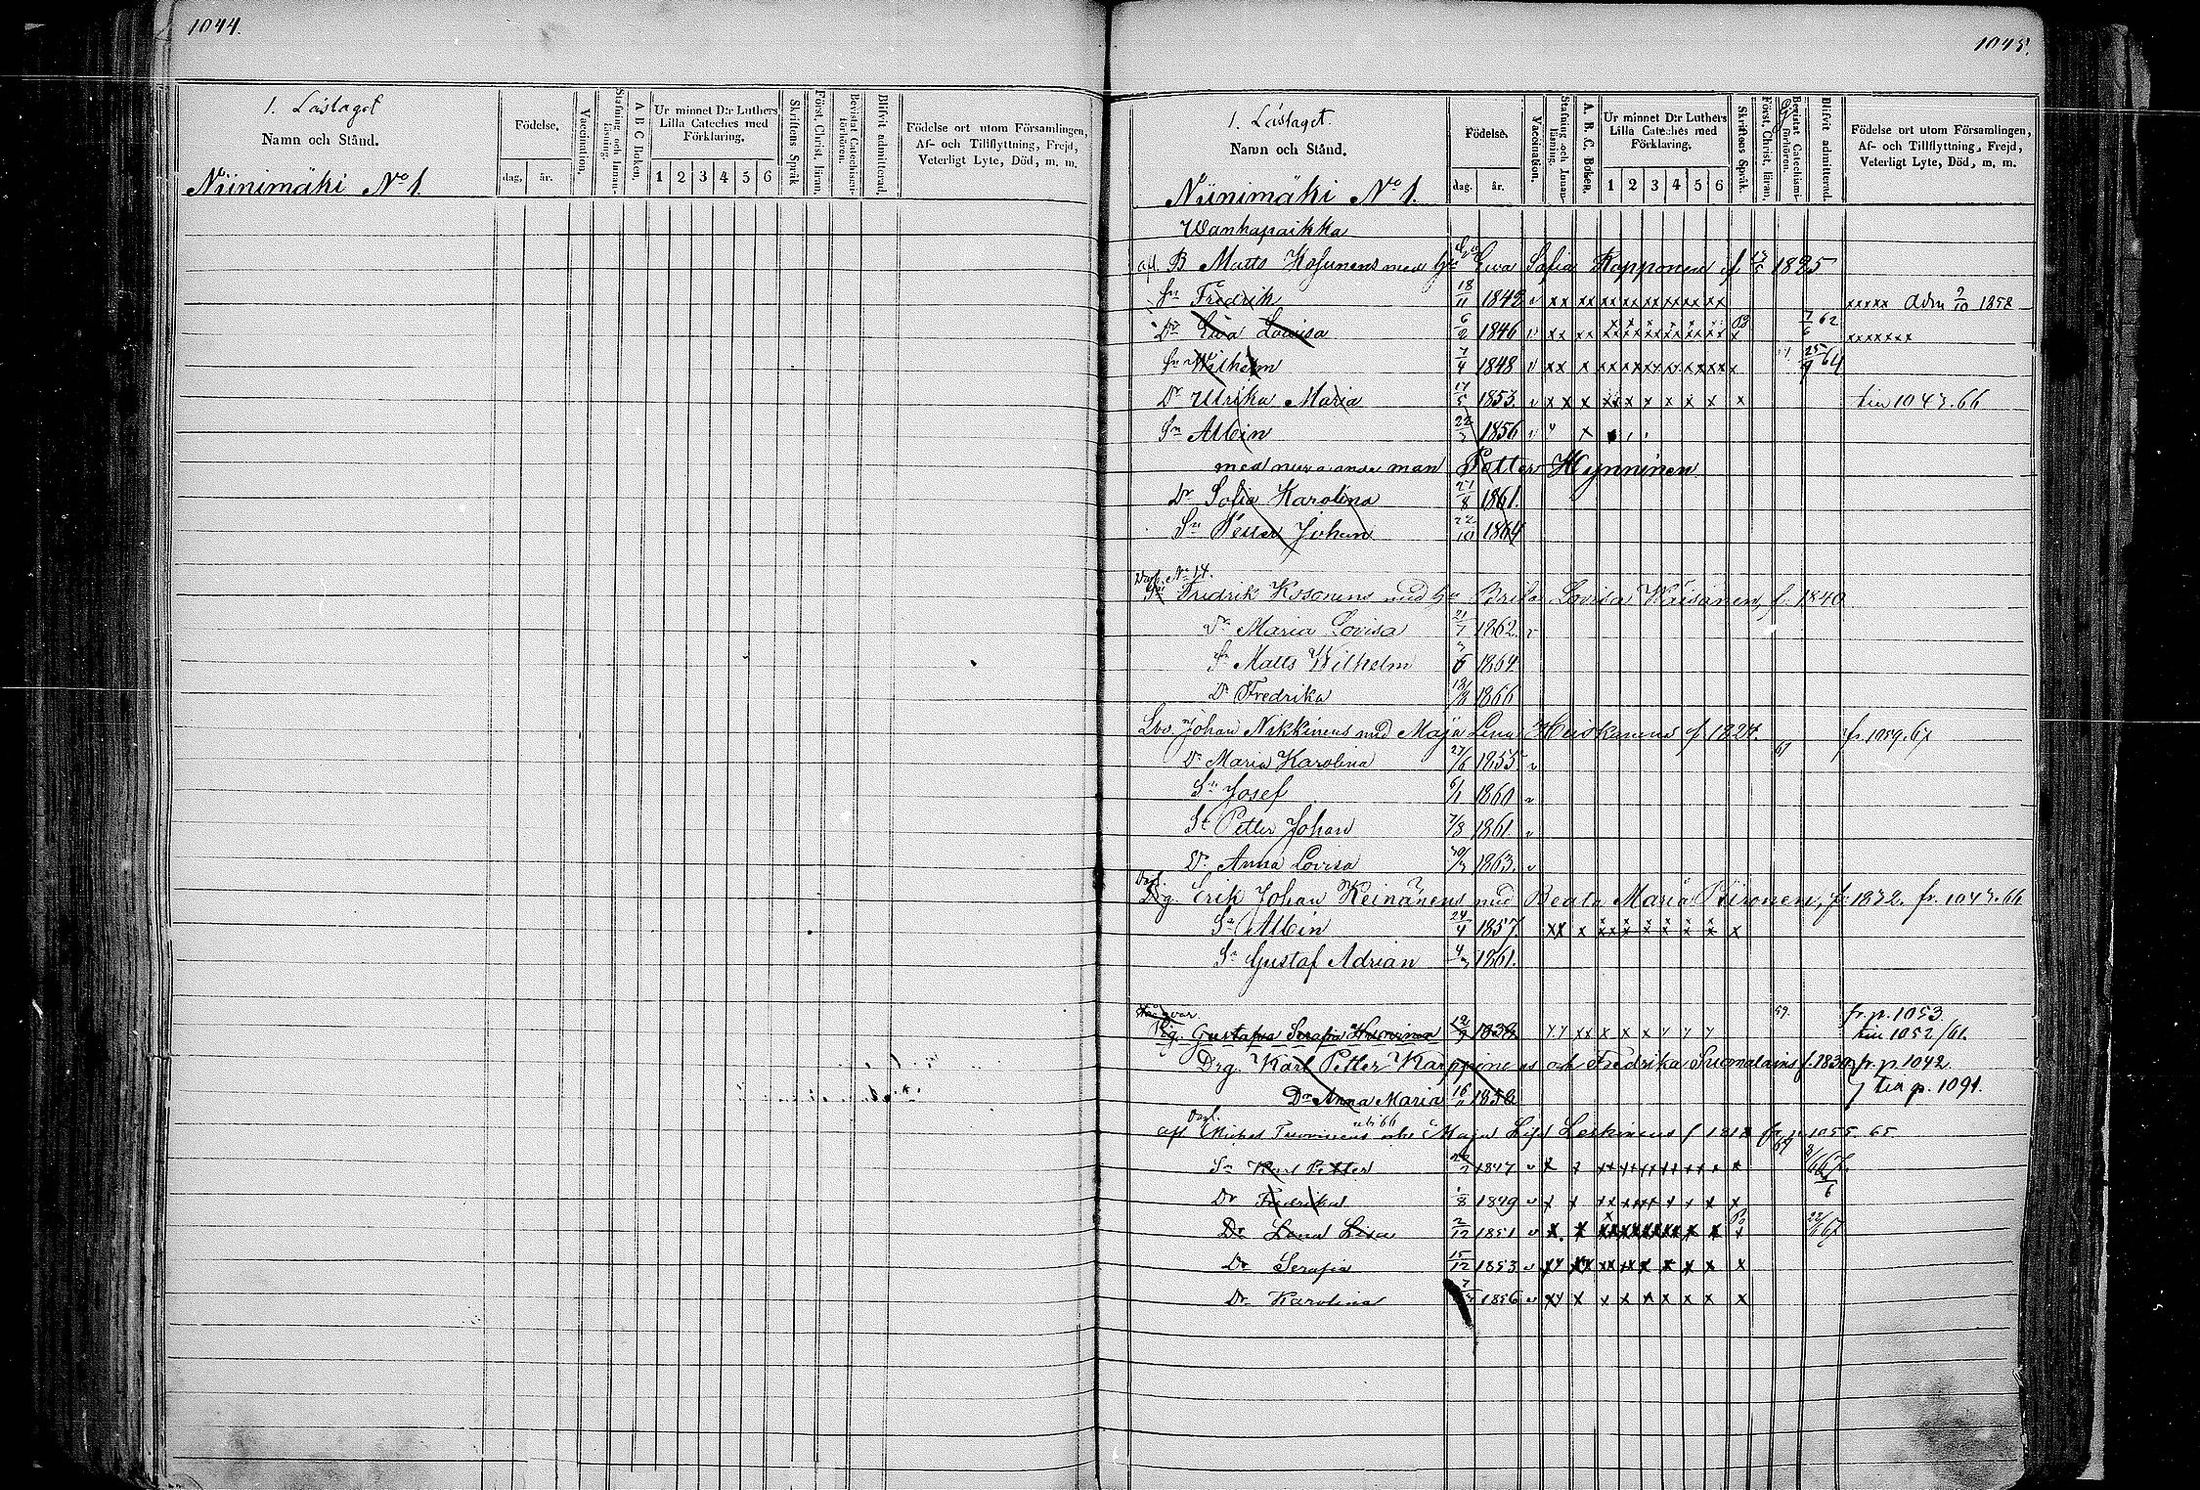 1044.
1. Läslaget
Namn och Stånd.
Niinimäki No 1.
Födelse.
dag, år.
Vaccination.
Stafning och Innan-läsning.
A B C Boken.
Ur minnet D:r Luthers Lilla Cateches med Förklaring.
1 2 3 4 5 6
Skriftens Språk
Först. Christ. läran.
Bevistat Catechismi-förhören.
Blifvit admitterad.
Födelse ort utom Församlingen, Af- och Tillflyttning, Frejd, Veterligt Lyte, Död, m. m.
1045.
1. Läslaget.
Namn och Stånd.
Niinimäki No 1.
Födelse.
dag. år.
Vaccination.
Stafning och Innan-läsning.
A. B. C. Boken.
Ur minnet D:r Luthers Lilla Cateches med Förklaring.
1 2 3 4 5 6
Skriftens Språk.
Först. Christ. läran.
Bevistat Catechismi-förhören.
Blifvit admitterad.
Födelse ort utom Församlingen, Af- och Tillflyttning, Frejd, Veterligt Lyte, Död, m. m.
Wanhapaikka
afl. B Matts Kosunens med Eva Sofia Kapponen f 1825
Sn Fredrik 18/11 1842 v xx xx xxxxx Adm 9/10 1858
Dr Eva Lovisa 6/2 1846 v xx xx 7/6 62 xxxxxxx
Sn Wilhelm 7/4 1848 v xx x 25/9 64
Dr Ulrika Maria 17/5 1853. v x x x x x x x x till 1047.66
Sn Albin 22/3 1856 v x
med nuvarande man Petter Hynninen
Dr Sofia Karolina 21/8 1861.
Sn Petter Johan 22/10 1864
No 14.
Fredrik Kosonens med Brita Lovisa Wäisänen, f. 1840
Dr Maria Lovisa 21/7 1862. v
Sn Matts Wilhelm 1864
Dr Fredrika 1866
Johan Nikkinens med Maja Lena Heiskanens f 1824. fr. 1059.67
Dr Maria Karolina 27/6 1855 v 67
Sn Josef 6/1 1860 v
Sn Petter Johan 7/3 1861. v
Dr Anna Lovisa 1863. v
Drg. Erik Johan Keinänens med Beata Maria Piironen, f. 1832. fr. 1047.66
Sn Albin 24/4 1857. xx x x x x x x x x
Sn Gustaf Adrian 1861.
Pig. Gustafva Serafia 12/9 1838 59. fr. p. 1053.
till 1052/61.
Drg. Karl Petter Karppinens och Fredrika Suomalains f. 1830 fr. p. 1042
Dr Anna Maria 16 1858 till p. 1091.
afl Michel Tuovinens Maja Lisa Leskinens f 1818 fr. p 1055. 65
Sn Karl Petter 1847 v x x
Dr Fredrika 1/8 1849 v x x
Dr Lena Lisa 2/12 1851 v x x 67
Dr Serafia 15/12 1853 v
Dr Karolina 1856 v